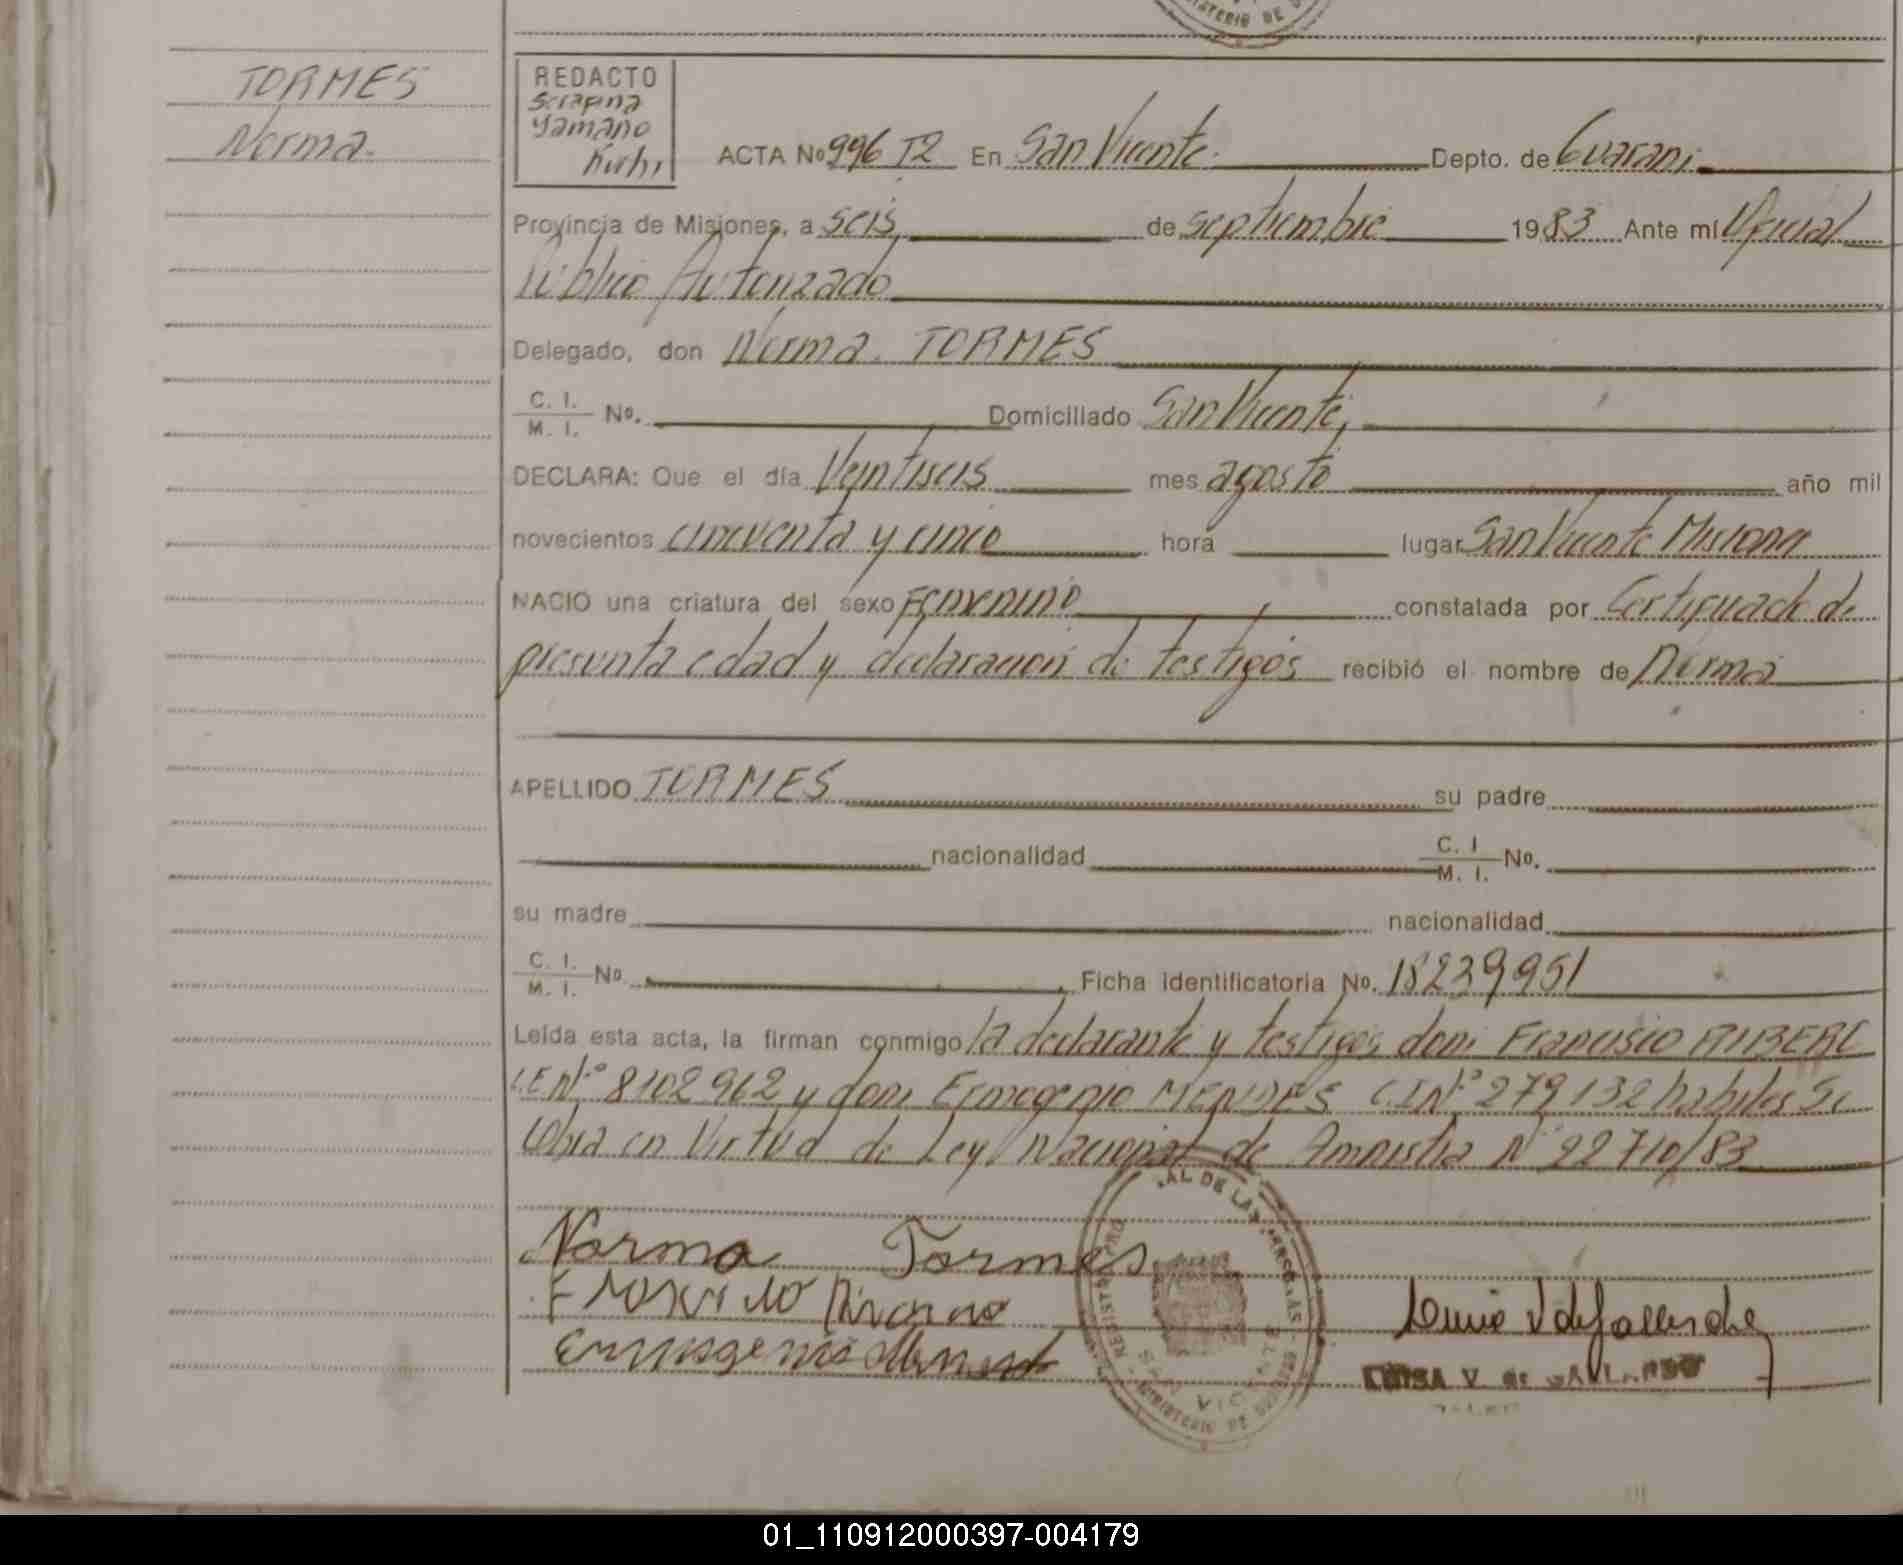 TORMES
Norma.
REDACTO
Serafina
Yamano
Kuhi
ACTA No 996 T2 En San Vicente. Depto. de Guarani
Provincia de Misiones, a seis de septiembre 1983 Ante mi Oficial
Público Autorizado
Delegado, don Norma TORMES
C. I. / M. I. No. Domiciliado San Vicente,
DECLARA: Que el día Veintiseis mes agosto año mil
novecientos cincuenta y cinco hora lugar San Vicente Misiones
NACIO una criatura del sexo Femenino constatada por Certificado de
presunta edad y declaración de testigos recibió el nombre de Norma
APELLIDO TORMES su padre
nacionalidad C. I / M. I. No.
su madre nacionalidad
C. I. / M. I. No. Ficha identificatoria No. 18239951
Leída esta acta, la firman conmigo la declarante y testigos don: Francisco
Nº 8102962 y don: Ermogenio MENDES C.I Nº 279132 habiles Se
labra en Virtud de Ley Nacional de Amnistia Nº 22710/83
Norma Tormes
AL DE LAS PERSONAS
SAN VICENTE
MINISTERIO DE
LUISA V. de GALLARDO
01_110912000397-004179